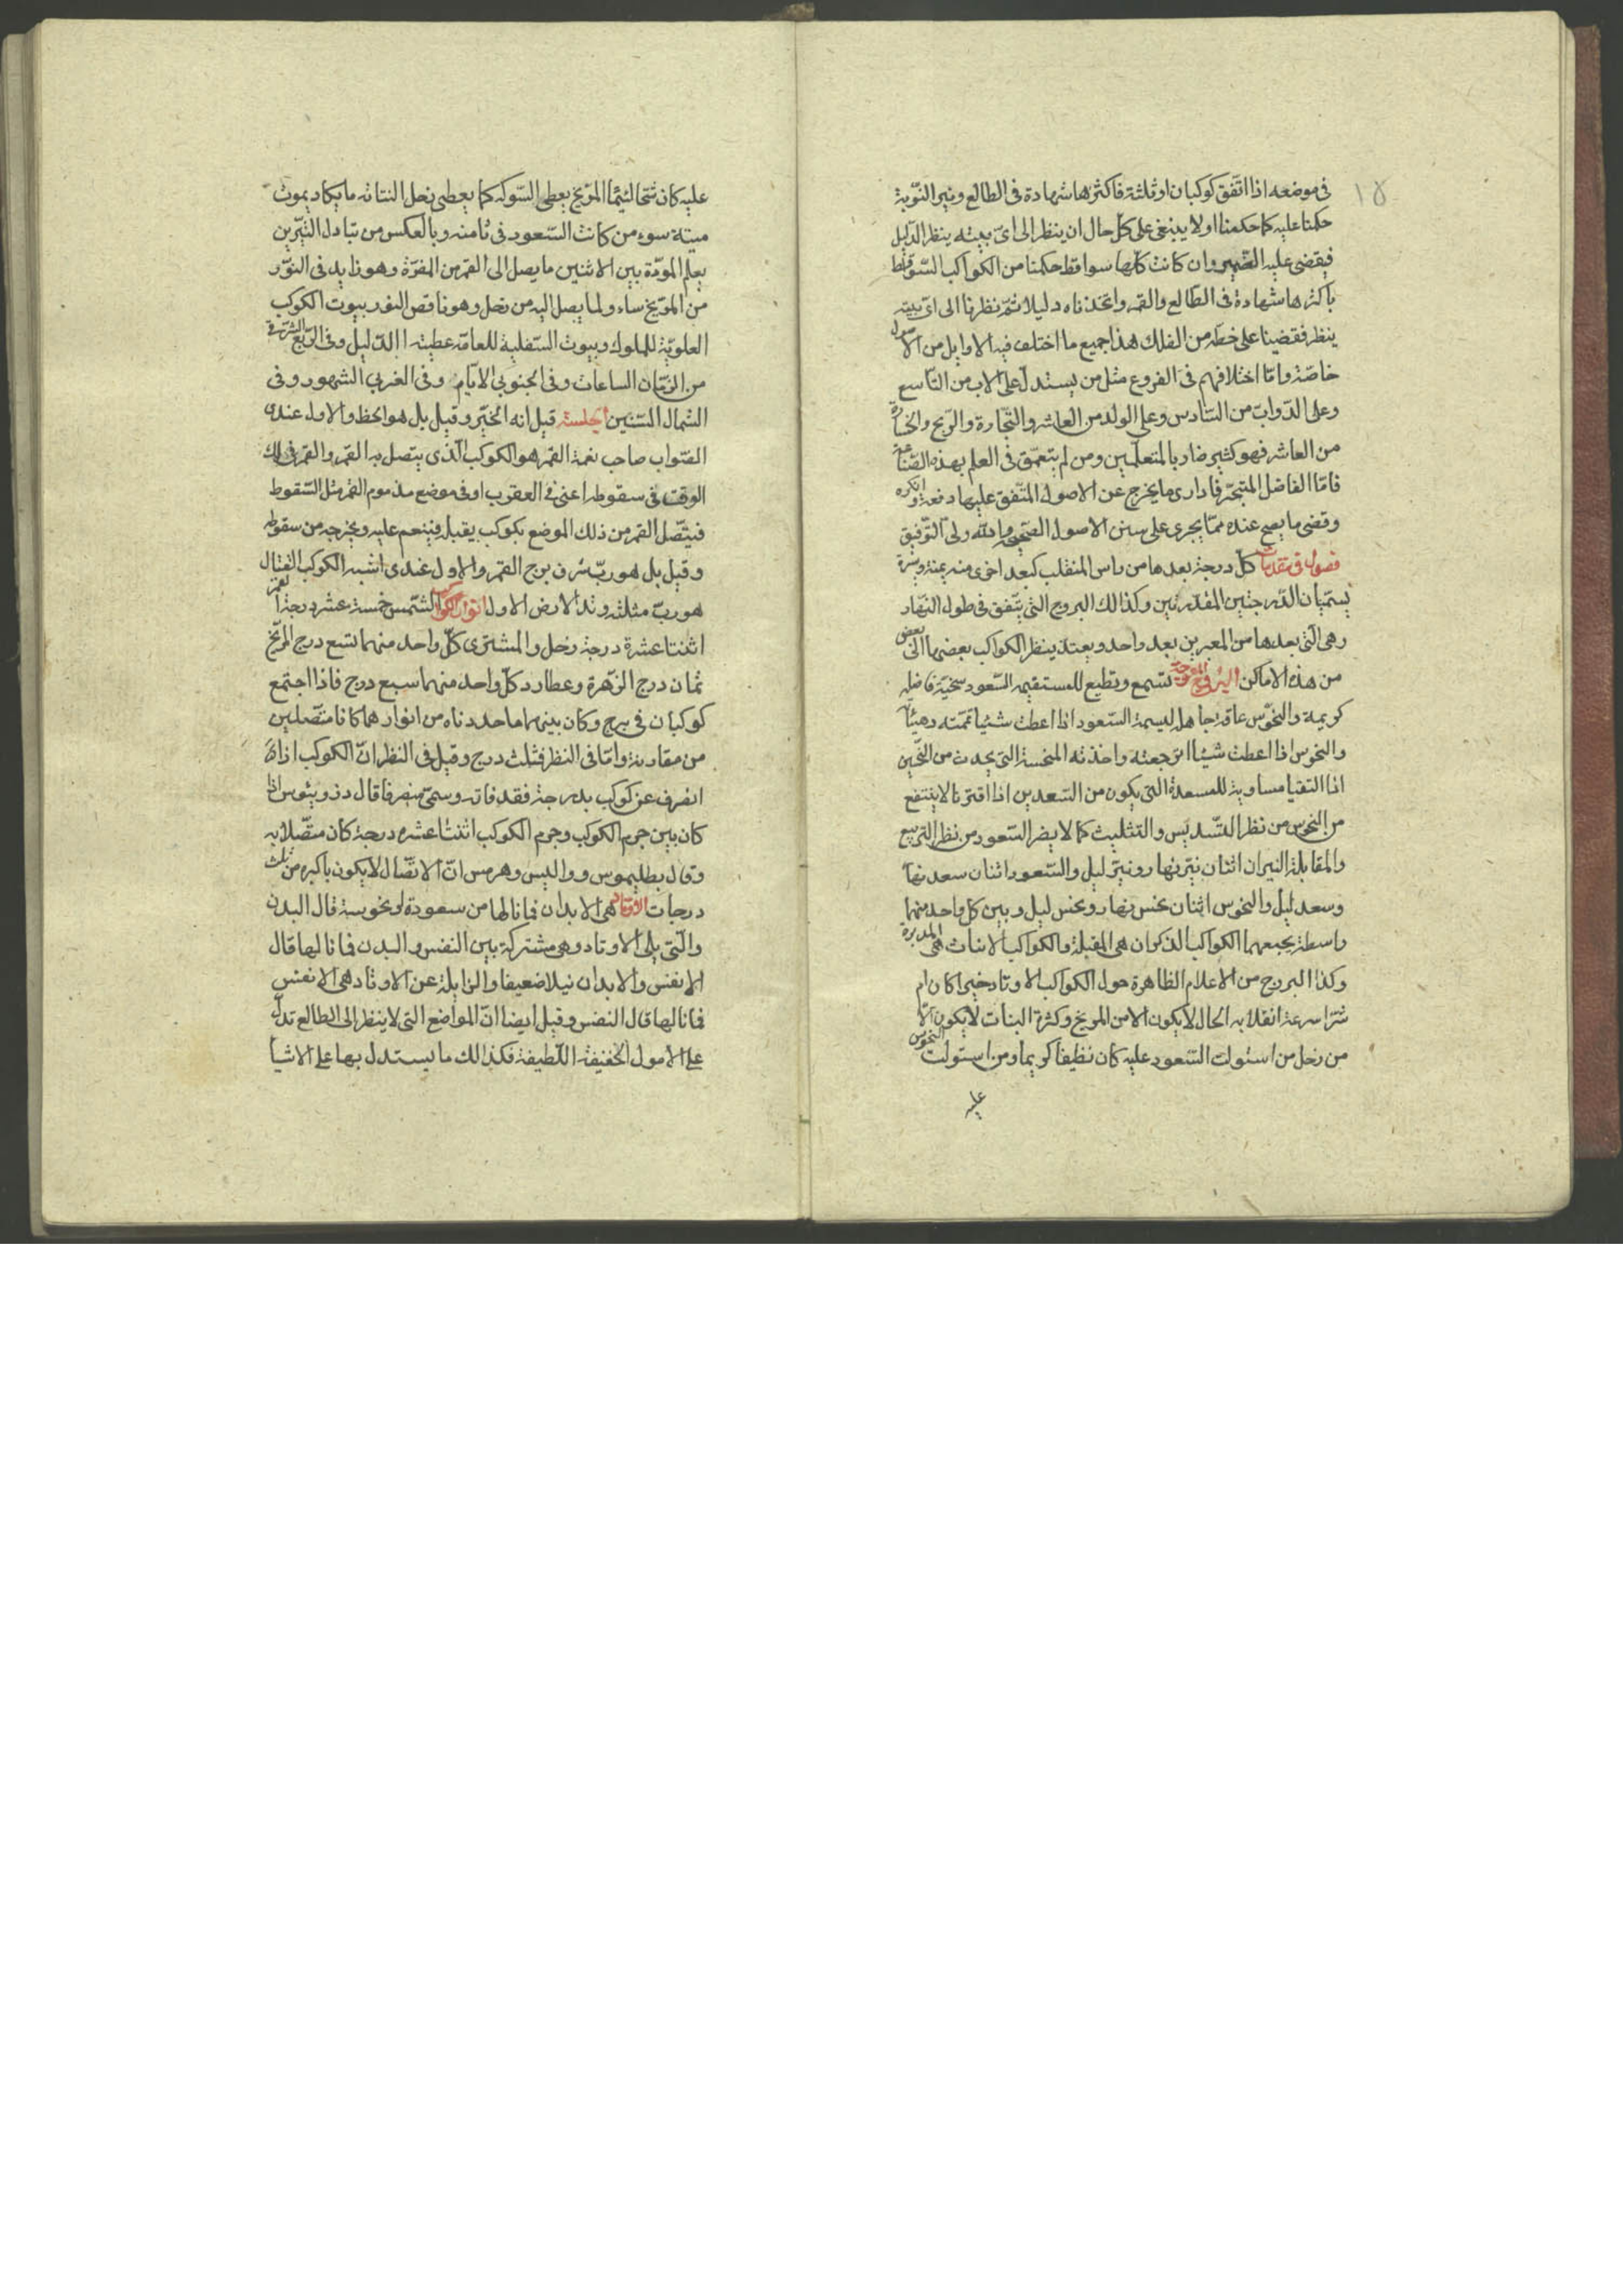 ١٥
فى موضعه اذا اتّفق كوكبان او ثلثة فاكثرها شهادة فى الطالع ونير النّوبة
حكمنا عليه كما حكمنا اولا ينبغى على كلّ حال ان ينظر الى اىّ بيته ينظر الدّليل
فيقضى عليه الضمير وان كانت كلّها سواقط حكمنا من الكواكب السّواقط
باكثرها شهادة فى الطّالع والقمر واتخذناه دليلا ثمّ نظرنا الى اىّ بيته
ينظر فقضينا على خطّه من الفلك هذا جميع ما اختلف فيه الاوايل من الاصول
خاصّة وامّا اختلافهم فى الفروع مثل من يستدلّ على الاب من التّاسع
وعلى الدّوابّ من السّادس وعلى الولد من العاشر والتّجارة والرّبح والخسارة
من العاشر فهو كثير ضار بالمتعلّمين ومن لم يتعمّق فى العلم بهذه الصّناعة
فامّا الفاضل المتبحّر فاذا رى ما يخرج عن الاصول المتّفق عليها دفعه وانكره
وقضى ما يصح عنده ممّا يجرى على سنن الاصول الصّحيحه والله ولىّ التّوفيق
فصول فى مقدمات كلّ درجة بعدها من راس المنقلب كبعد اخرى منه يمنة ويسرة
يسمّيان الدّرجتين المقتدرتين وكذالك البروج التى يتّفق فى طول النّهار
وهى الّتى بعدها من المعبرين بعد واحد وبعتد ينظر الكواكب بعضها الى بعض
من هذه الاماكن البروج المعوجّة تسمع وتطيع للمستقيمه السّعود سخيّة فاضله
كريمة والنحوس عاقة جاهل لييمة السّعود اذا اعطت شيئا تمّمته وهيئا
والنحوس اذا اعطت شيئا ارتجعته واخذته المنحسة التى يحدث من النّحسين
اذا التقيا مساوية للمسعدة التى يكون من السّعدين اذا اقترنا لا ينتفع
من النحوس من نظر التّسديس والتثليث كما لا يضر السّعود من نظر التربيع
والمقابلة النيران اثنان نيّر نهار ونيّر ليل والسّعود اثنان سعد نهار
وسعد ليل والنحوس اثنان نحس نهار ونحس ليل وبين كل واحد منهما
واسطة يجمعهما الكواكب الذكران هى المقبلة والكواكب الاناث هى المدبرة
وكذا البروج من الاعلام الظاهرة حول الكواكب الاوتاد خيرا كان ام
شرّا سرعة انقلابه الحال لا يكون الا من المريخ وكثرة البنات لا يكون الّا
من زحل من استولت السّعود عليه كان نظيفا كريما ومن استولت النحوس
عليه
عليه كان شحّا لئيما المرّيخ يعطى السّوكه كما يعطى زحل النتانة ما يكاد يموت
ميتة سوء من كانت السّعود فى ثامنه وبالعكس من تبادل النّيّرين
يعلم المودّة بين الاثنين ما يصل الى القمر من المضرّة وهو زايد فى النوّر
من المرّيخ ساء ولما يصل اليه من زحل وهو ناقص النور بيوت الكوكب
العلويّة للملوك وبيوت السّفلية للعامّة عطيته الدّليل وفى الرّبع الشرقى
من الزمّان الساعات وفى الجنوبى الايّام وفى الغربى الشهور وفى
الشمال السّنين الجلسة قيل انه الخيّر وقيل بل هو الحظ والاول عندى
الصّواب صاحب نعمة القمر هو الكوكب الّذى يتّصل به القمر والقمر فى ذلك
الوقت فى سقوطه اعنى فى العقرب او فى موضع مذموم القمر مثل السّقوط
فيتّصل القمر من ذلك الموضع بكوكب يقبله فينعم عليه ويخرجه من سقوطه
وقيل بل هو ربّ شرف برج القمر والاول عندى اشبه الكوكب القتال
هو ربّ مثلثة وتد الارض الاول انوار الكواكب الشّمس خمسة عشر درجة القمر
اثنتا عشرة درجة زحل والمشترى كلّ واحد منهما تسع درج المرّيخ
ثمان درج الزهرة وعطارد كلّ واحد منهما سبع درج فاذا اجتمع
كوكبان فى برج وكان بينهما ما حددناه من انوارهما كانا متّصلين
من مقاربة وامّا فى النظر فثلث درج وقيل فى النظر انّ الكوكب اذا
انصرف عن كوكب بدرجة فقد فاته وسمّى منصرفا قال دزوثيوس اذا
كان بين جرم الكوكب وجرم الكوكب اثنتا عشره درجة كان متّصلا به
وقال بطليموس وواليس وهرمس انّ الاتّصال لا يكون باكبر من ثلث
درجات الاوتاد هى الابدان فما نالها من سعودة او نحوسة نال البدن
والّتى يلى الاوتاد وهى مشتركة بين النفس والبدن فما نالها قال
الانفس والابدان نيلا ضعيفا والزايلة عن الاوتاد هى الانفس
فما نالها قال النفس وقيل ايضا انّ المواضع التى لا ينظر الى الطالع تدلّ
على الامول الخفيفة اللّطيفة فكذالك ما يستدل بها على الاشيا